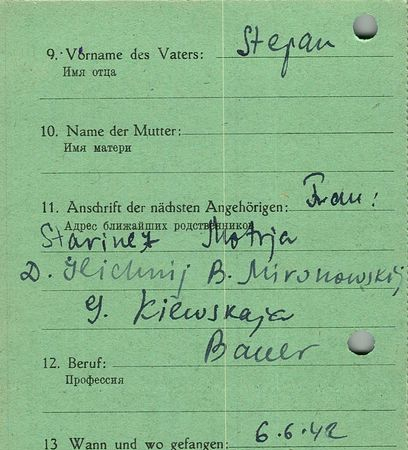 9. Vorname des Vaters: Stepan
Имя отца
10. Name der Mutter:
Имя матери
11. Anschrift der nächsten Angehörigen: Frau:
Адрес ближайших родственников
Starinez Motrja
D. Ilichnij B. Mironowskij
G. Kiewskaja
Bauer
12. Beruf:
Профессия
13 Wann und wo gefangen: 6.6.42